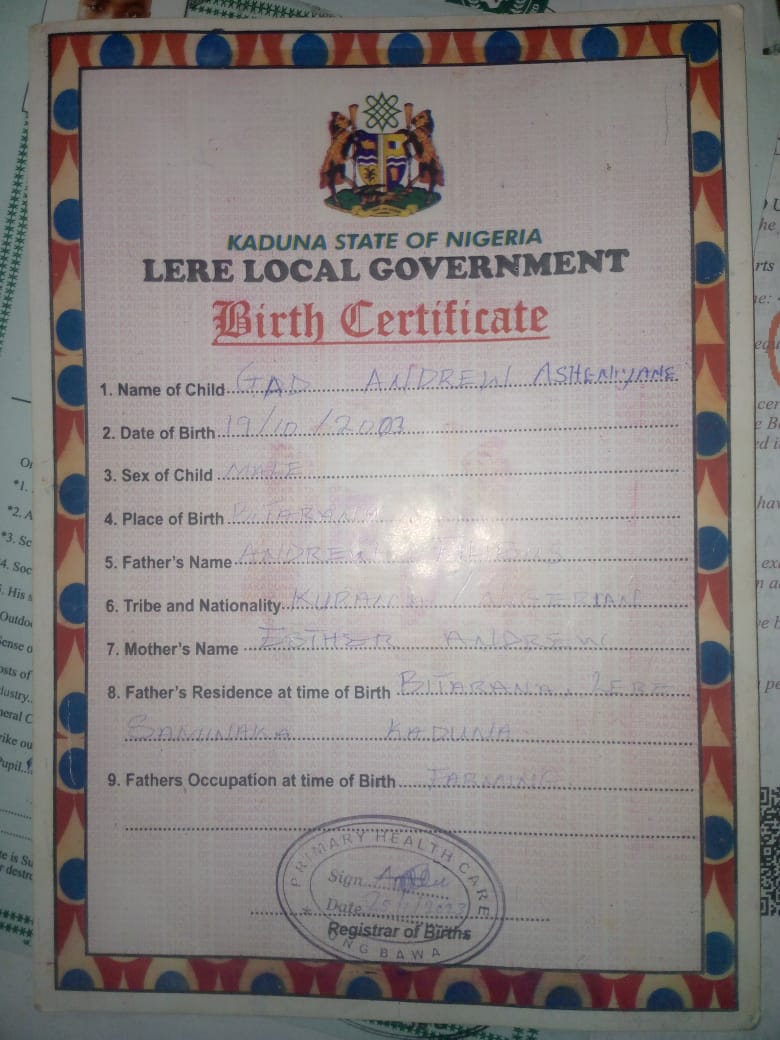 KADUNA STATE OF NIGERIA
LERE LOCAL GOVERNMENT
Birth Certificate
1. Name of Child GAD ANDREW ASHENIYANE
2. Date of Birth 19/10/2003
3. Sex of Child MALE
4. Place of Birth BITARANA
5. Father's Name ANDREW
6. Tribe and Nationality NIGERIAN
7. Mother's Name ESTHER ANDREW
8. Father's Residence at time of Birth BITARANA. LERE
SAMINAKA KADUNA
9. Fathers Occupation at time of Birth FARMING
PRIMARY HEALTH CARE
Sign
Date
Registrar of Births
UNG BAWA